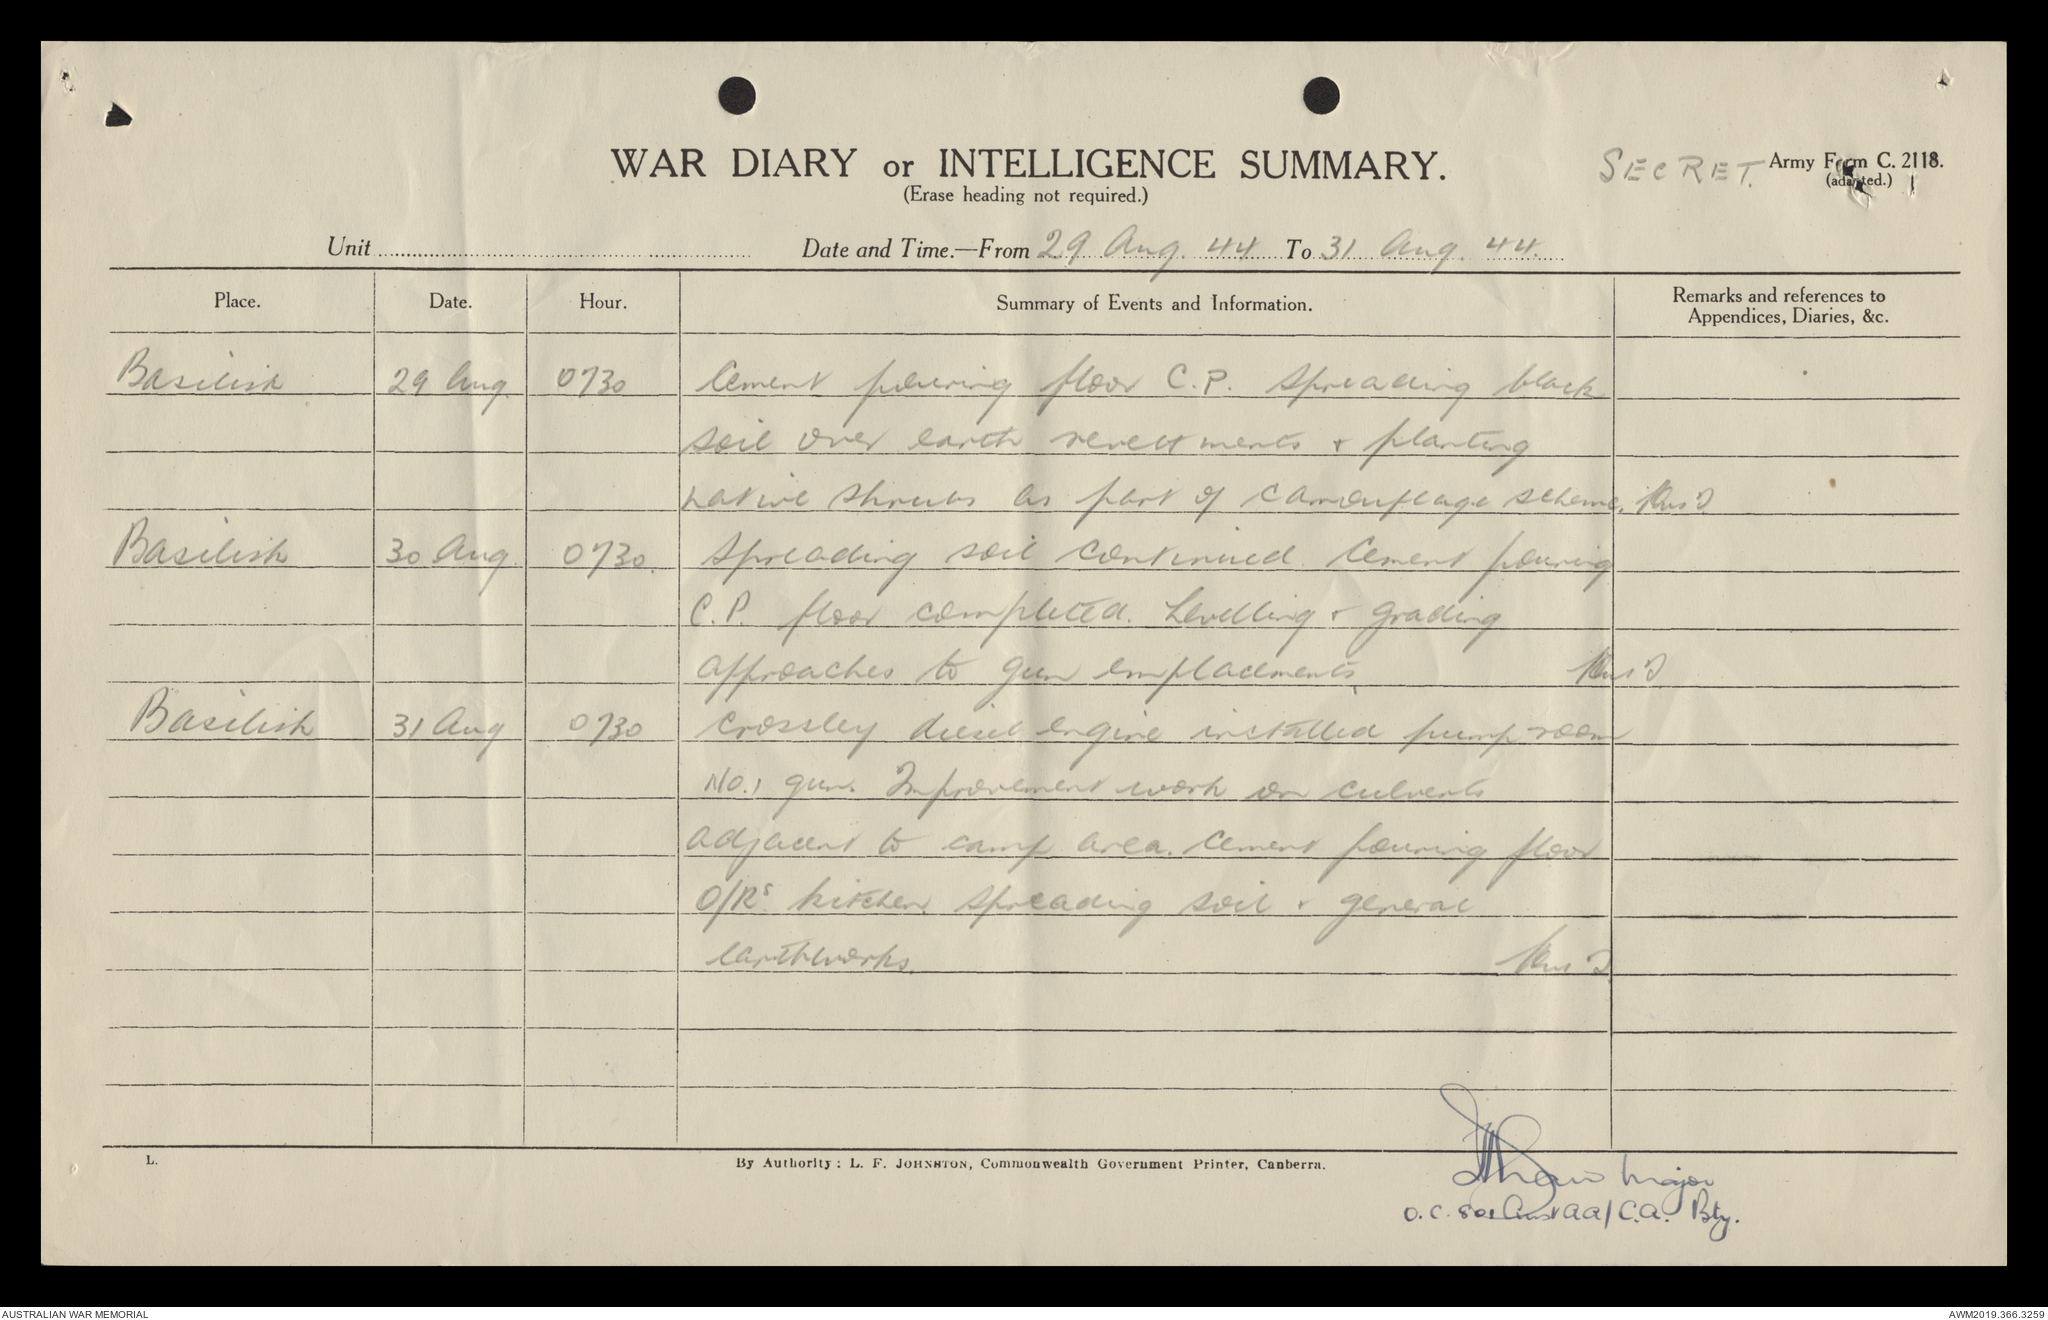 WAR DIARY or INTELLIGENCE SUMMARY.
(Erase heading not required.)
SECRET. Army Form C. 2118.
(adapted.)
Unit Date and Time.—From 29 Aug. 44 To 31 Aug. 44.
Place. Date. Hour. Summary of Events and Information. Remarks and references to
Appendices, Diaries, &c.
Basilisk 29 Aug. 0730 Cement pouring floor C.P. Spreading black
soil over earth revettments & planting
native shrubs as part of camouflage scheme.
Basilisk 30 Aug 0730. Spreading soil continued. Cement pouring
C.P. floor completed. Levelling & grading
approaches to gun emplacements.
Basilisk 31 Aug 0730 Crossley diesel engine installed pump room
No.1 gun. Improvement work on culverts
adjacent to camp area. Cement pouring floor
O/Rs kitchen. Spreading soil & general
earthworks.
L. By Authority: L. F. JOHNSTON, Commonwealth Government Printer, Canberra.
Major
O.C. Aust AA/C.A. Bty.
AUSTRALIAN WAR MEMORIAL AWM2019.366.3259